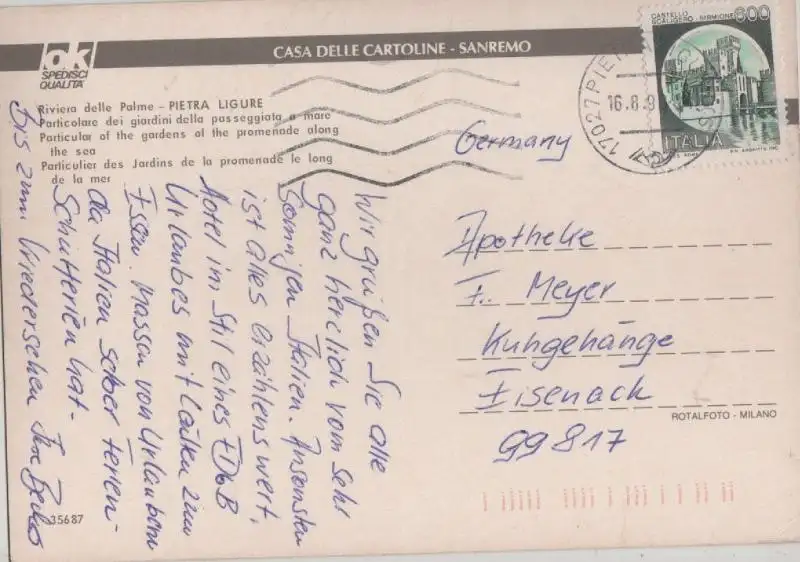 ok
SPEDISCI
QUALITA'
CASA DELLE CARTOLINE - SANREMO
Riviera delle Palme - PIETRA LIGURE
Particolare dei giardini della passeggiata a mare
Particular of the gardens of the promenade along
the sea
Particulier des Jardins de la promenade le long
de la mer
CASTELLO
SCALIGERO - SIRMIONE
600
ITALIA
17027 PIET
16.8.9
Germany
Apotheke
F. Meyer
Kuhgehänge
Eisenack
99817
ROTALFOTO - MILANO
Wir grüßen Sie alle
ganz herzlich vom sehr
sonnigen Italien. Ansonsten
ist alles erzählenswert.
Hotel im Stil eines FDGB
Urlaubes mit Läuten zum
Essen. Massen von Urlaubern
da Italien selber Ferien-
Schulferien hat -
Bis zum Wiedersehen Ihre
35687